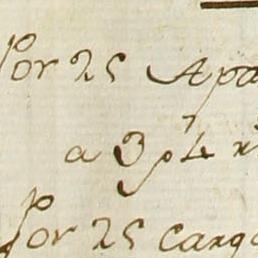 Por 25 Apa
a 3 p 4 r
Por 25 carg